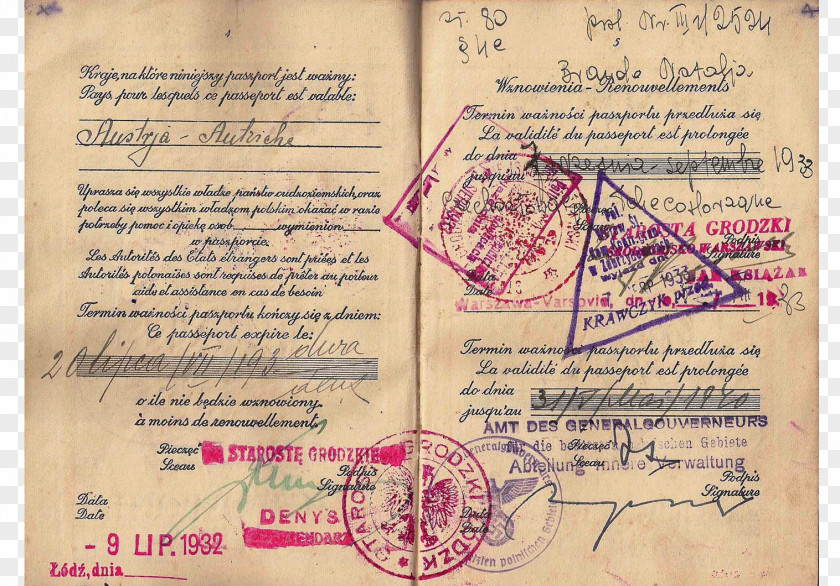 Kraje, na które niniejszy paszport jest ważny:
Pays pour lesquels ce passeport est valable:
Austrja - Autriche
Uprasza się wszystkie władze państw cudzoziemskich, oraz
poleca się wszystkim władzom polskim okazać w razie
potrzeby pomoc i opiekę osob wymienion
w paszporcie.
Les Autorités des Etats étrangers sont priées et les
Autorités polonaises sont requises de prêter au porteur
aide et assistance en cas de besoin
Termin ważności paszportu kończy się z dniem:
Ce passeport expire le:
20 lipca/VII/193 dwa
deux
o ile nie będzie wznowiony.
à moins de renouvellement.
Pieczęć
Sceau
STAROSTĘ GRODZKIEGO
Podpis
Signature
DENYS
Data
Date
- 9 LIP. 1932
Łódź, dnia
STAROSTA GRODZKI
ŁÓDZKI
5
st. 80
§ 4e
prot Nr. III 1/2524
Brayda Natalja
Wznowienia - Renouvellements
Termin ważności paszportu przedłuża się
La validité du passeport est prolongée
do dnia września - septembre 1933
jusqu'au
Czechosłowacja Tchécoslovaque
Sceau
STAROSTA GRODZKI
WARSZAWSKI
Podpis
Signature
JAN KSIĄŻAK
Data
Date
Warszawa-Varsovie, dn.
1933
KRAWCZYK przod.
Termin ważności paszportu przedłuża się
La validité du passeport est prolongée
do dnia
jusqu'au
31/V/Mai/1940
AMT DES GENERALGOUVERNEURS
für die besetzten polnischen Gebiete
Abteilung Innere Verwaltung
Pieczęć
Sceau
Podpis
Signature
Data
Date
Generalgouverneur
besetzten polnischen Gebiete